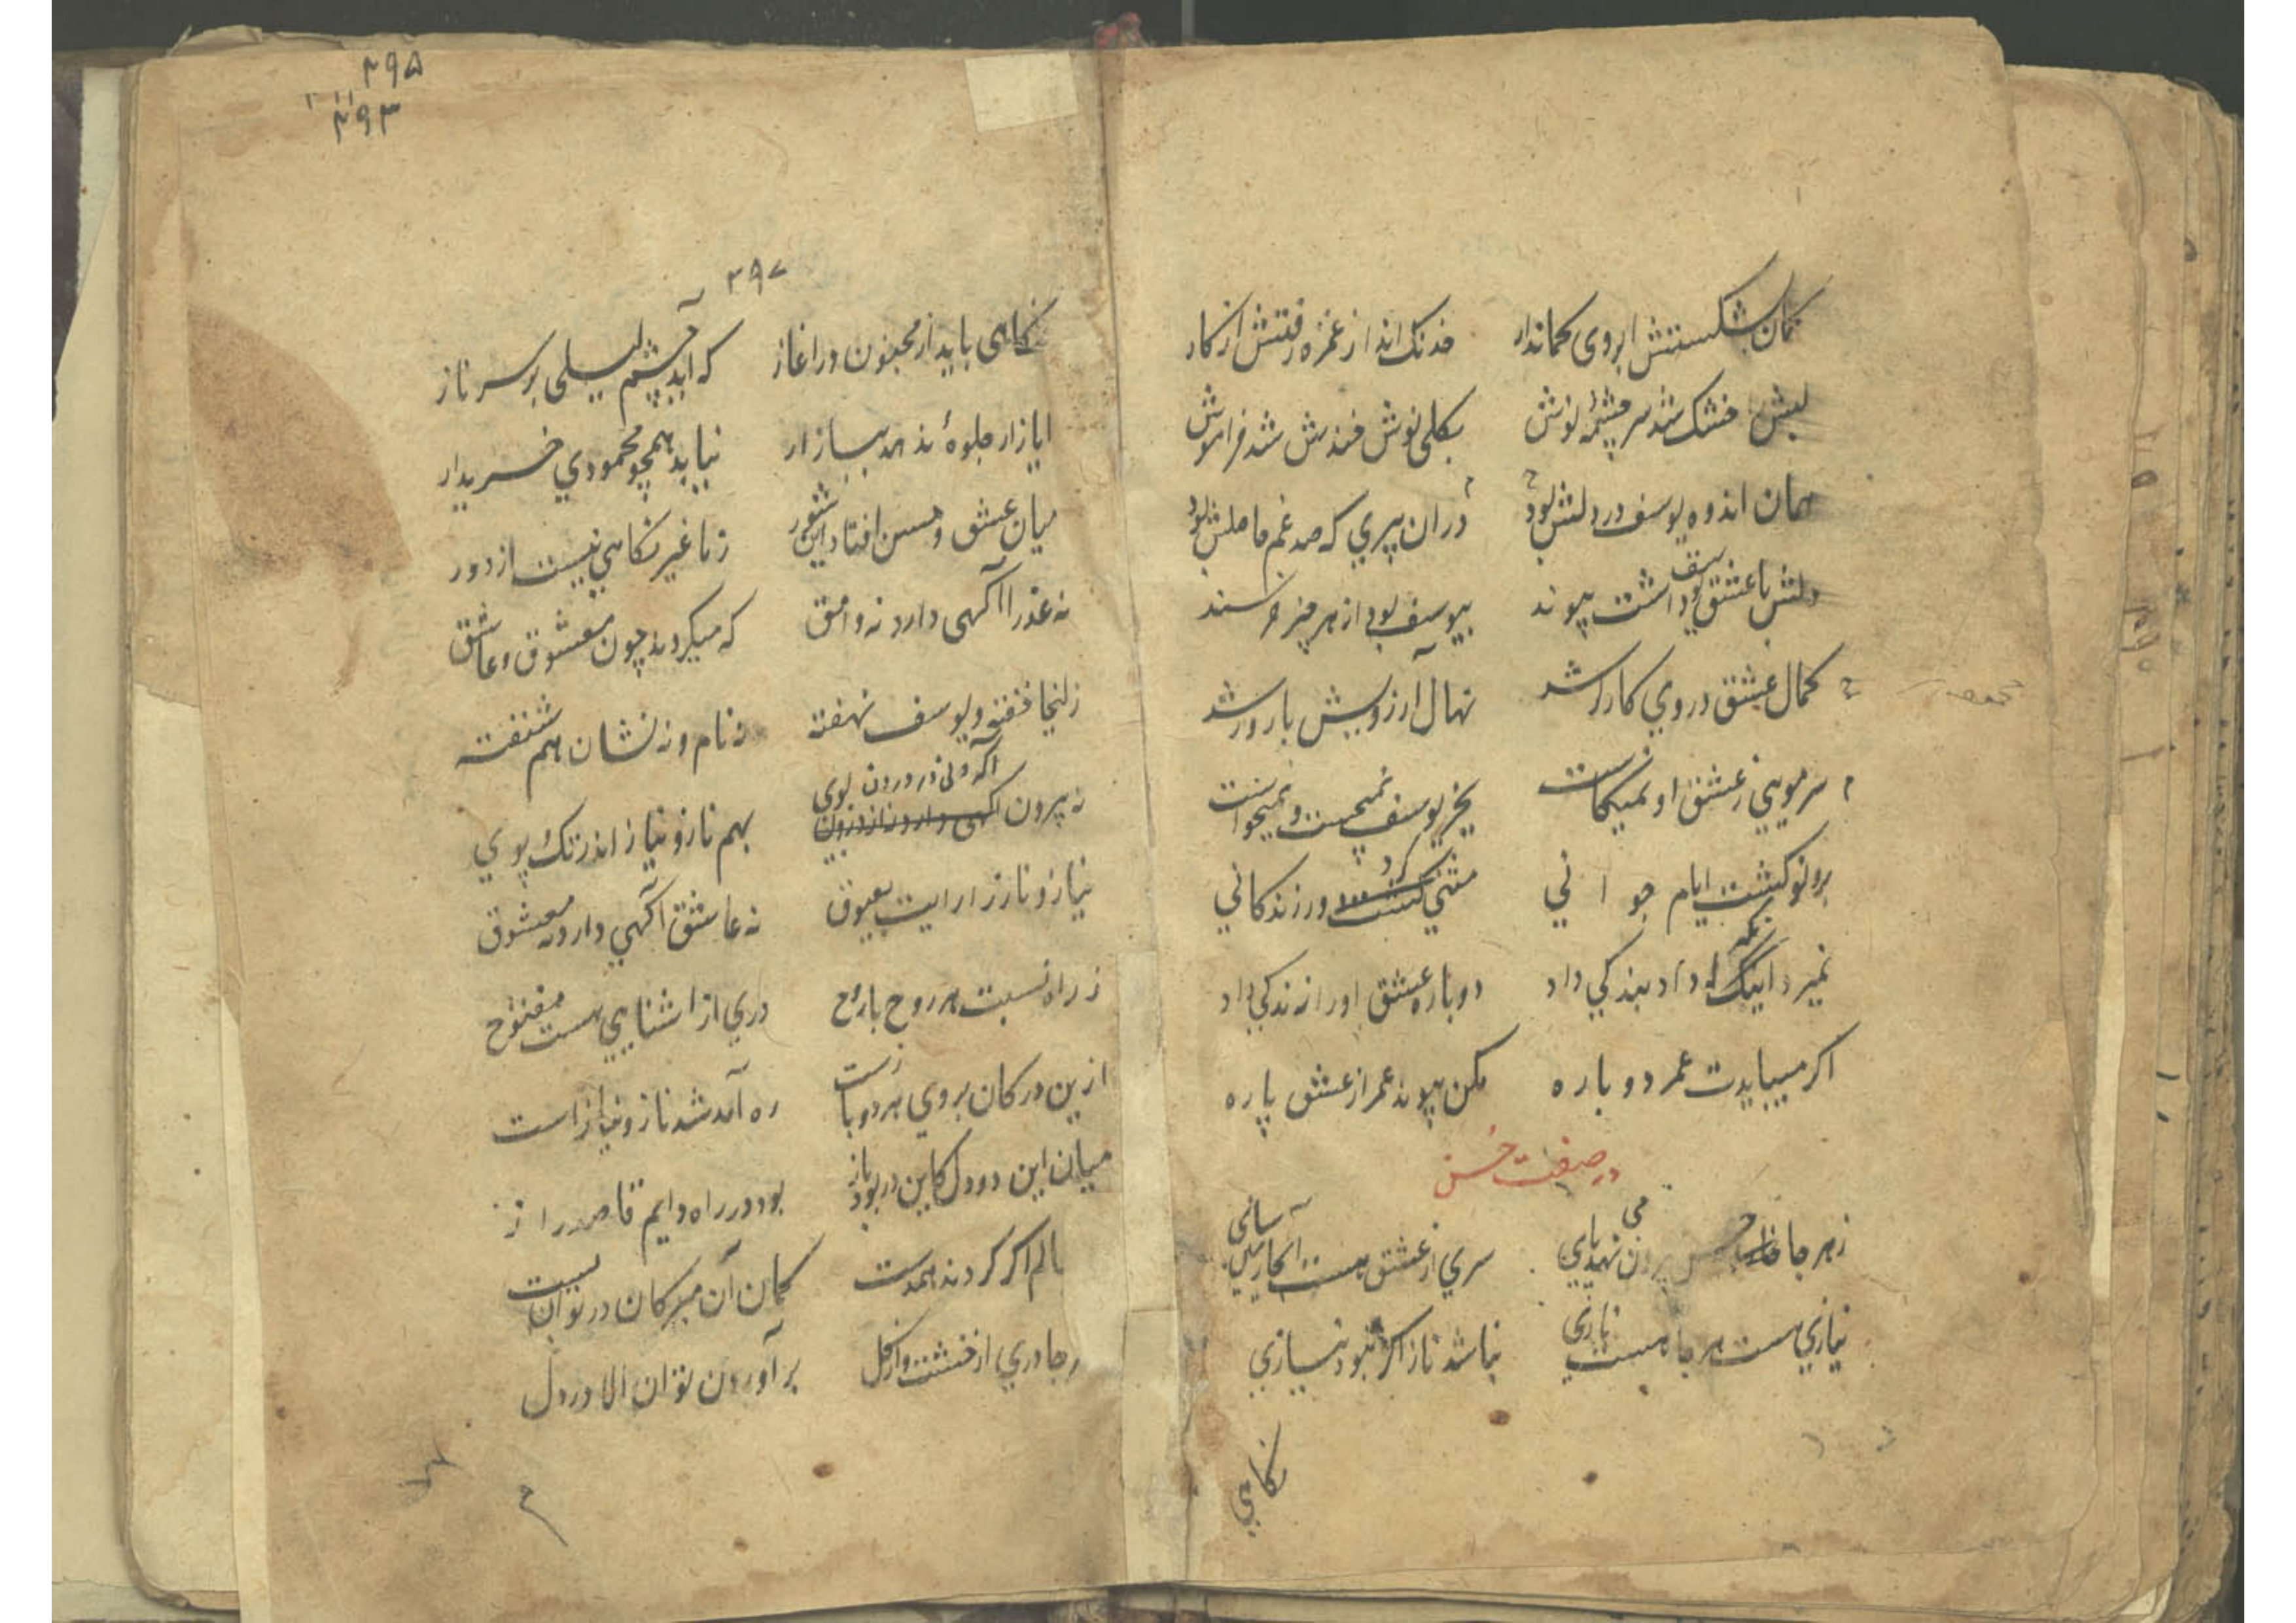 کمان بشکستش ابروی کماندار خدنک انداز غمزه رفتش از کار
لبش خشک شد سرچشمهٔ نوش بکلی نوش خندش شد فراموش
همان اندوه یوسف در دلش بود در ان پیری که صد غم حاصلش بود
دلش با عشق یوسف داشت پیوند بیوسف بود از هر چیز خرسند
کمال عشق در وی کارکر شد نهال آرزویش بارور شد
سر مویی ز عشق او نمیکاست بجز یوسف نمیجست و نمیخواست
برو نو کشت ایام جوانی مثنی کرد دور زندکانی
نمیرد اینکه داد بندکی داد دوباره عشق او را زندکی داد
اکر میبایدت عمر دوباره مکن پیوند عمر از عشق پاره
در صفت حسن
زهر جا حسن بیرون می نهد پای سری از عشق هست آنجا
نیازی هست هر جا هست نازی نباشد ناز اکر نبود نیازی
نکاهی
۲۹۵
۲۹۳
۲۹۷
نکاهی باید از مجنون در اغاز که آید چشم لیلی بر سر ناز
ایاز ار جلوهٔ ندهد ببازار نیابد همچو محمودی خریدار
میان عشق و حسن افتاد این شور ز ما غیر نکاهی نیست از دور
نه عذرا آکهی دارد نه وامق که میکردند چون معشوق و عاشق
زلیخا خفته و یوسف نهفته نه نام و نه نشان هم شنفته
نه بیرون آکه و نی در درون بوی بهم ناز و نیاز اندر تک پوی
نیاز و ناز را رایت بعیوق نه عاشق آکهی دارد نه معشوق
ز راه نسبت هر روح با روح دری از اشنایی هست مفتوح
ازین در کان بروی هر دو باز است ره آمد شد ناز و نیاز است
میان این دو دل کاین در بود باز بود در راه دایم قاصد راز
اکر کردند همدست کمان آن مبر کان در توان بست
دری از خشت و از کل بر آوردن توان الا در دل